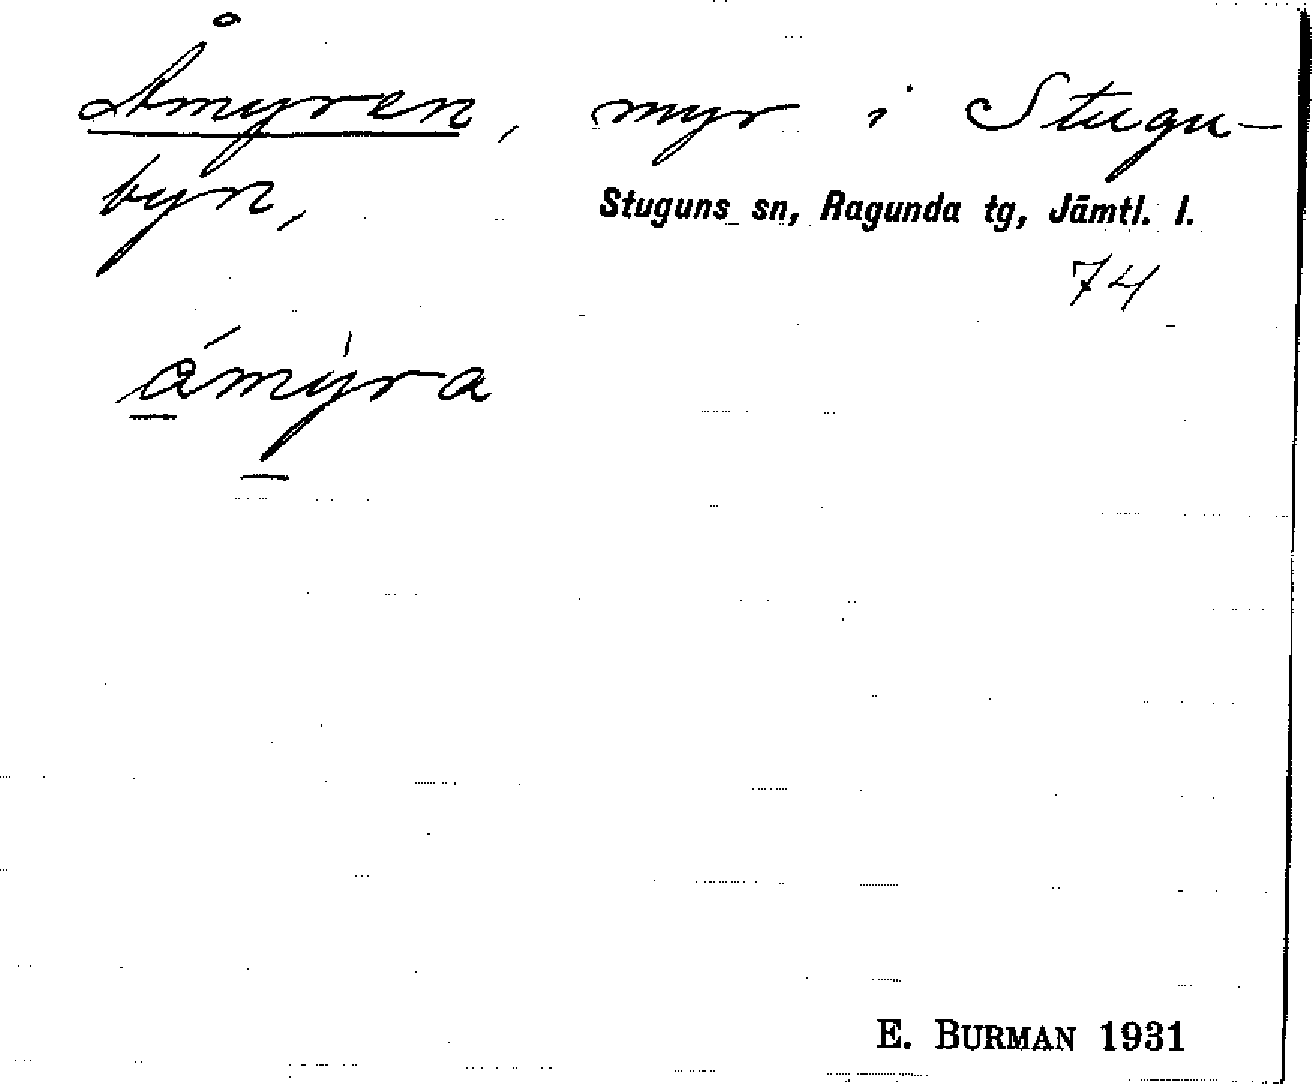 Åmyren, myr i Stugu-
byn,
Stuguns sn, Ragunda tg, Jämtl. l.
74
åmýra
E. BURMAN 1931